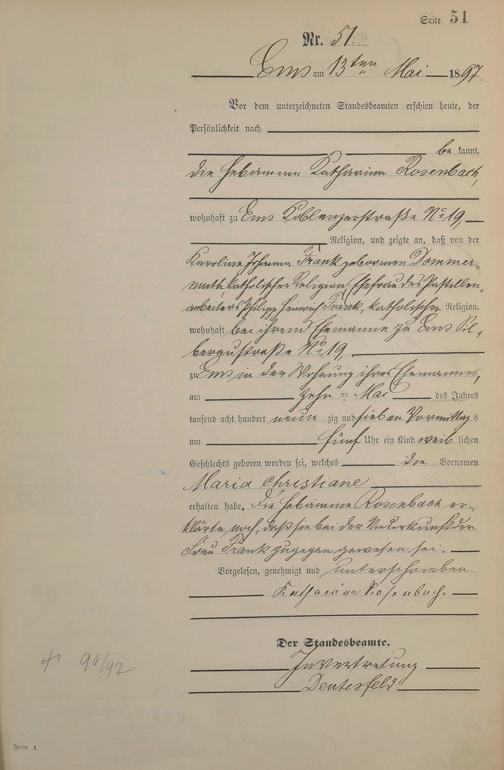 Seite 51
Nr. 51.
Ems am 13ten Mai 1897.
Vor dem unterzeichneten Standesbeamten erschien heute, der
Persönlichkeit nach
be kannt,
die Hebamme Katharina Rosenbach,
wohnhaft zu Ems Koblenzerstraße No 19,
Religion, und zeigte an, daß von der
Karoline Johanna Frank geborenen Dommer-
muth, katholischer Religion, Ehefrau des Pastillen-
arbeiters Philipp Heinrich Frank, katholischer Religion,
wohnhaft bei ihrem Ehemanne zu Ems
straße No 19,
zu Ems in der Wohnung ihres Ehemannes,
am zehn ten Mai des Jahres
tausend acht hundert neun zig und sieben Vormittags
um fünf Uhr ein Kind weib lichen
Geschlechts geboren worden sei, welches die Vornamen
Maria Christiane
erhalten habe. Die Hebamme Rosenbach er-
klärte noch, daß sie bei der Niederkunft der
Frau Frank zugegen gewesen sei.
Vorgelesen, genehmigt und unterschrieben.
Katharina Rosenbach.
Der Standesbeamte.
In Vertretung
+ 90/97
Form. A.